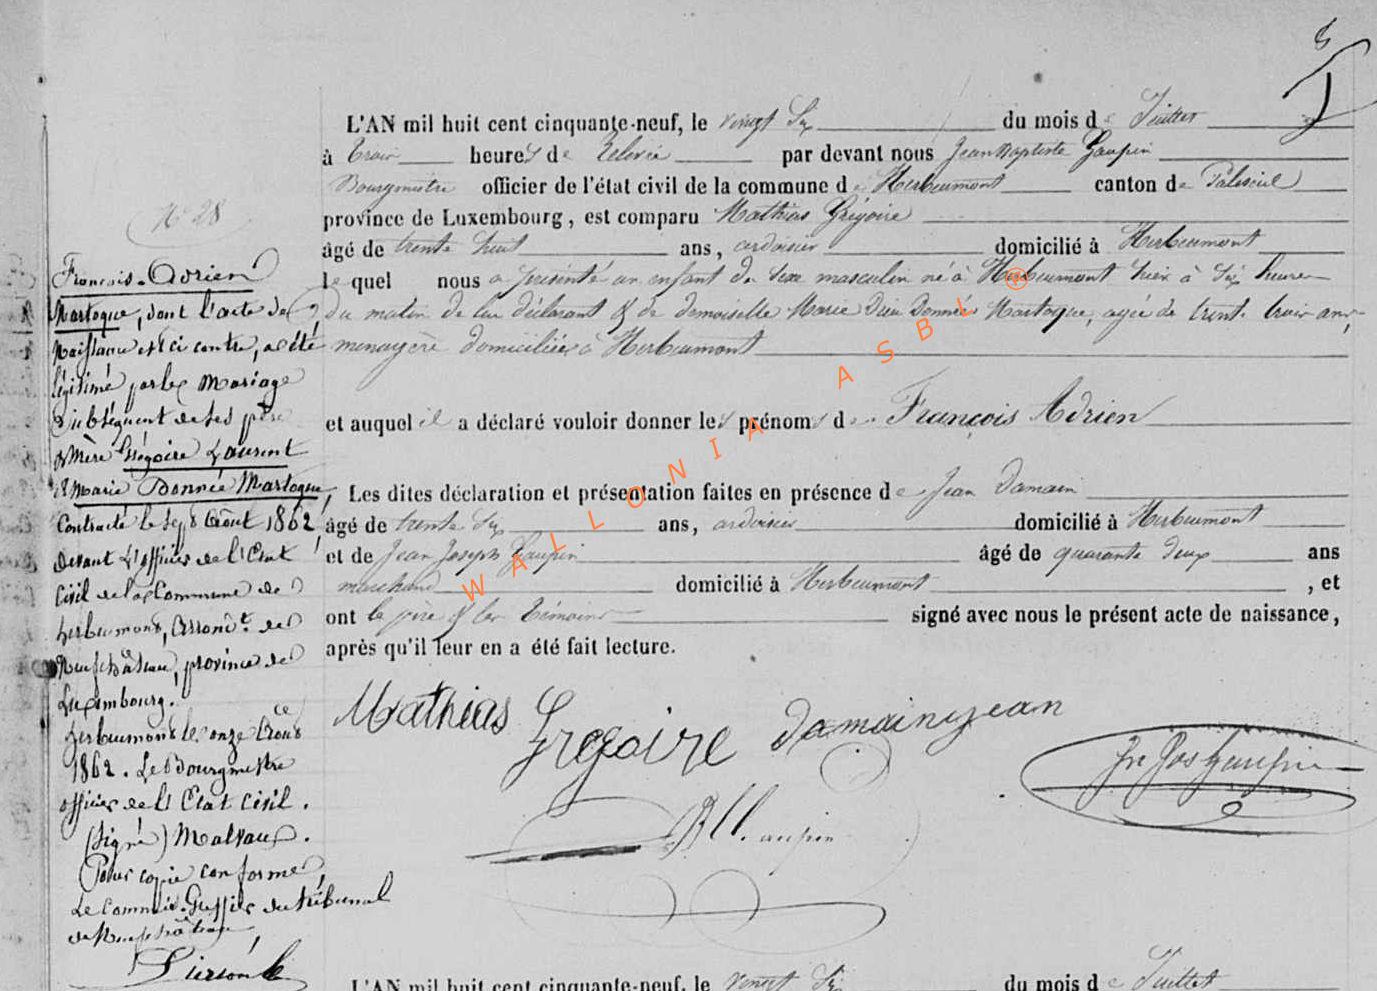 L'AN mil huit cent cinquante-neuf, le vingt Six du mois de Juillet
à trois heures de Relevée par devant nous Jean Baptiste Gaupin
Bourgmestre officier de l'état civil de la commune de Herbeumont canton de Paliseul
province de Luxembourg, est comparu Mathias Grégoire
âgé de trente huit ans, ardoisier domicilié à Herbeumont
lequel nous a présenté un enfant du sexe masculin né à Herbeumont hier à six heures
du matin de lui déclarant & de demoiselle Marie Dieu Donnée Martoque, agée de trente trois ans,
menagère domiciliée à Herbeumont
et auquel il a déclaré vouloir donner les prénoms de François Adrien
Les dites déclaration et présentation faites en présence de Jean Damain
âgé de trente six ans, ardoisier domicilié à Herbeumont
et de Jean Joseph Gaupin âgé de quarante deux ans
marchand domicilié à Herbeumont, et
ont le père & les témoins signé avec nous le présent acte de naissance,
après qu'il leur en a été fait lecture.
Mathias Gregoire Damain jean
Jn Jos Gaupin
JB Gaupin
N° 28
François-Adrien
Martoque, dont l'acte de
Naissance est ci contre, a été
légitimé par le Mariage
Subséquent de ses père
& Mère Grégoire Laurent
et Marie Donnée Martoque,
Contracté le sept Août 1862,
devant l'officier de l'Etat
Civil de la Commune de
herbeumont, Arrondt. de
Neufchâteau, province de
Luxembourg.
herbeumont le onze Août
1862. Le Bourgmestre
officier de l'Etat Civil.
(Signé) Malvaux.
Pour copie conforme
Le Commis-Greffier du tribunal
de Neufchâteau,
WALLONIA ASBL ®
L'AN mil huit cent cinquante-neuf, le vingt Six du mois de Juillet